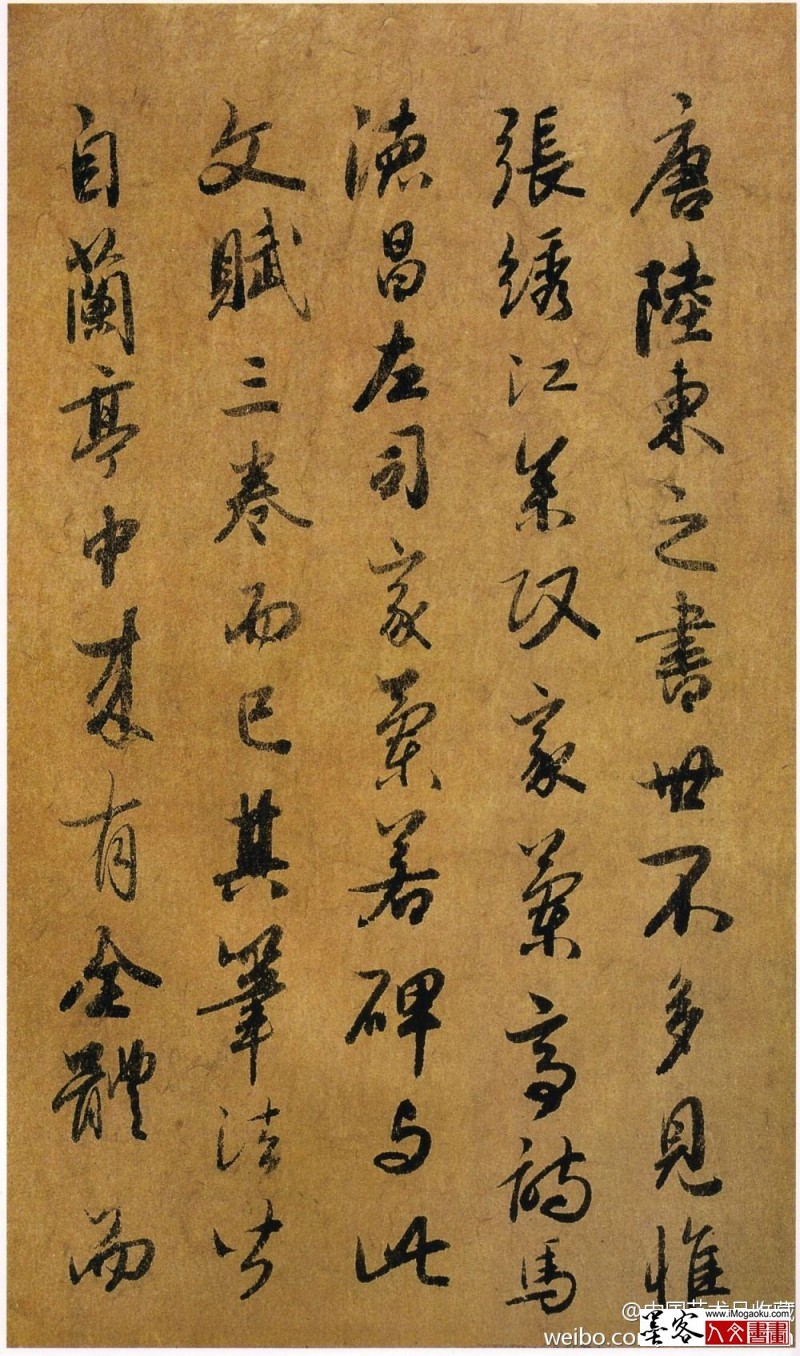 唐陸柬之書世不多見惟
張綉江參政家蘭亭詩馬
德昌左司家蘭若碑与此
文賦三卷而已其筆法皆
自蘭亭中來有全體而
@中国艺术品收藏
weibo.co
墨客
www.iMogaoku.com